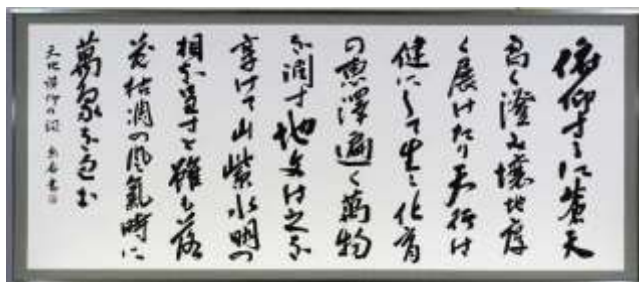 俯仰するに蒼天
高く澄み壌地厚
く展けたり天行は
健にして生々化育
の恵澤遍く萬物
を潤す地文は之を
享けて山紫水明の
相を呈すと雖も落
花枯凋の風氣時に
萬象を包む
天地俯仰の詞